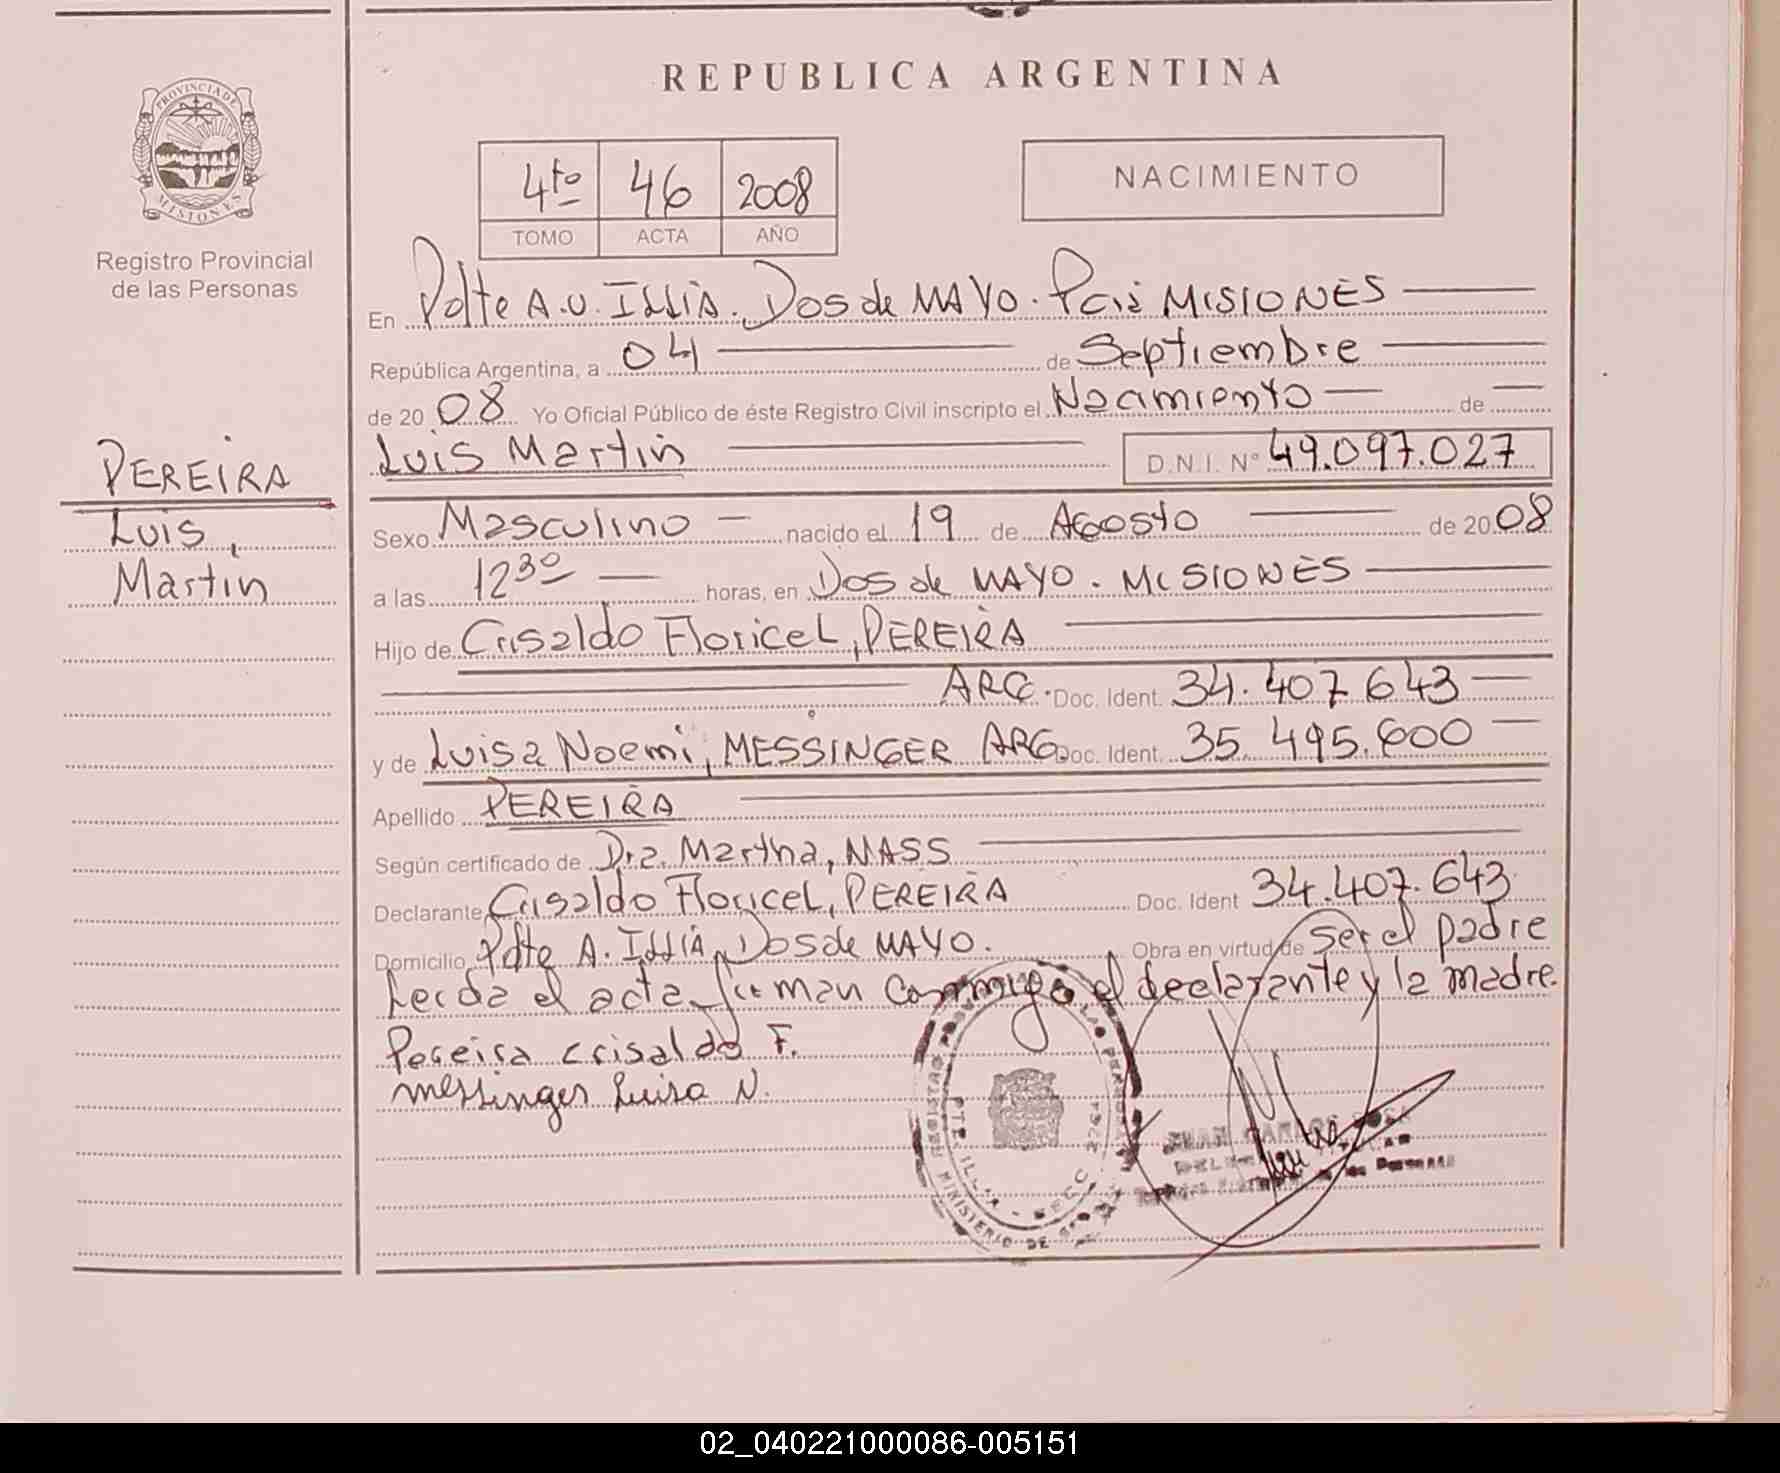 REPUBLICA ARGENTINA
PROVINCIA DE
MISIONES
Registro Provincial
de las Personas
4to 46 2008
TOMO ACTA AÑO
NACIMIENTO
En Pdte A.U. ILLIA. Dos de MAYO. Pcia MISIONES
República Argentina, a 04 de Septiembre
de 20 08 Yo Oficial Público de éste Registro Civil inscripto el Nacimiento de
Luis Martin D.N.I. N° 49.097.027
PEREIRA
Luis,
Martin
Sexo Masculino nacido el 19 de Agosto de 20 08
a las 12 30 horas, en Dos de MAYO. MISIONES
Hijo de Crisaldo Floricel, PEREIRA
ARG. Doc. Ident. 34.407.643
y de Luisa Noemi, MESSINGER ARG. Doc. Ident. 35.495.600
Apellido PEREIRA
Según certificado de Dra. Martha, NASS
Declarante Crisaldo Floricel, PEREIRA Doc. Ident 34.407.643
Domicilio Pdte A. ILLIA, Dos de MAYO. Obra en virtud de ser el padre
Leida el acta firman conmigo el declarante y la madre.
Pereira crisaldo F.
messinger Luisa N.
MINISTERIO DE
JUAN CARLOS
02_040221000086-005151